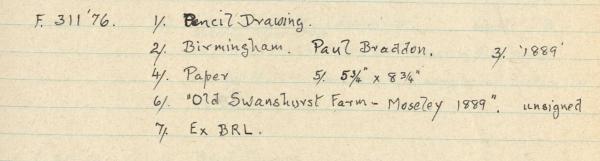 F. 311'76. 1/. Pencil Drawing.
2/. Birmingham. Paul Braddon. 3/. '1889'
4/. Paper 5/. 5¾" x 8¾"
6/. "Old Swanshurst Farm - Moseley 1889". unsigned
7/. Ex BRL.